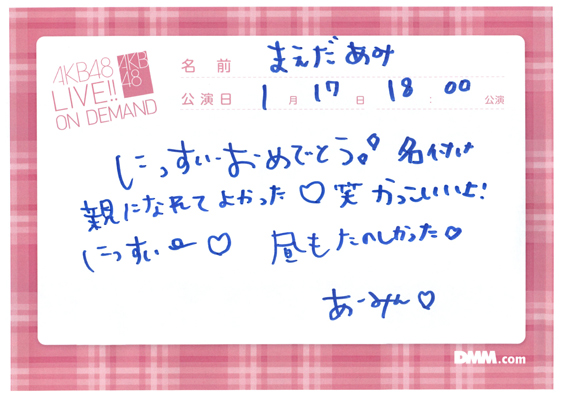 AKB48
LIVE!!
ON DEMAND
AKB
48
名前 まえだあみ
公演日 1月17日 18:00公演
にっすぃーおめでとう! 名付け
親になれてよかった♡笑 かっこいいよ!
にっすぃー♡ 昼もたのしかった♡
あーみん♡
DMM.com